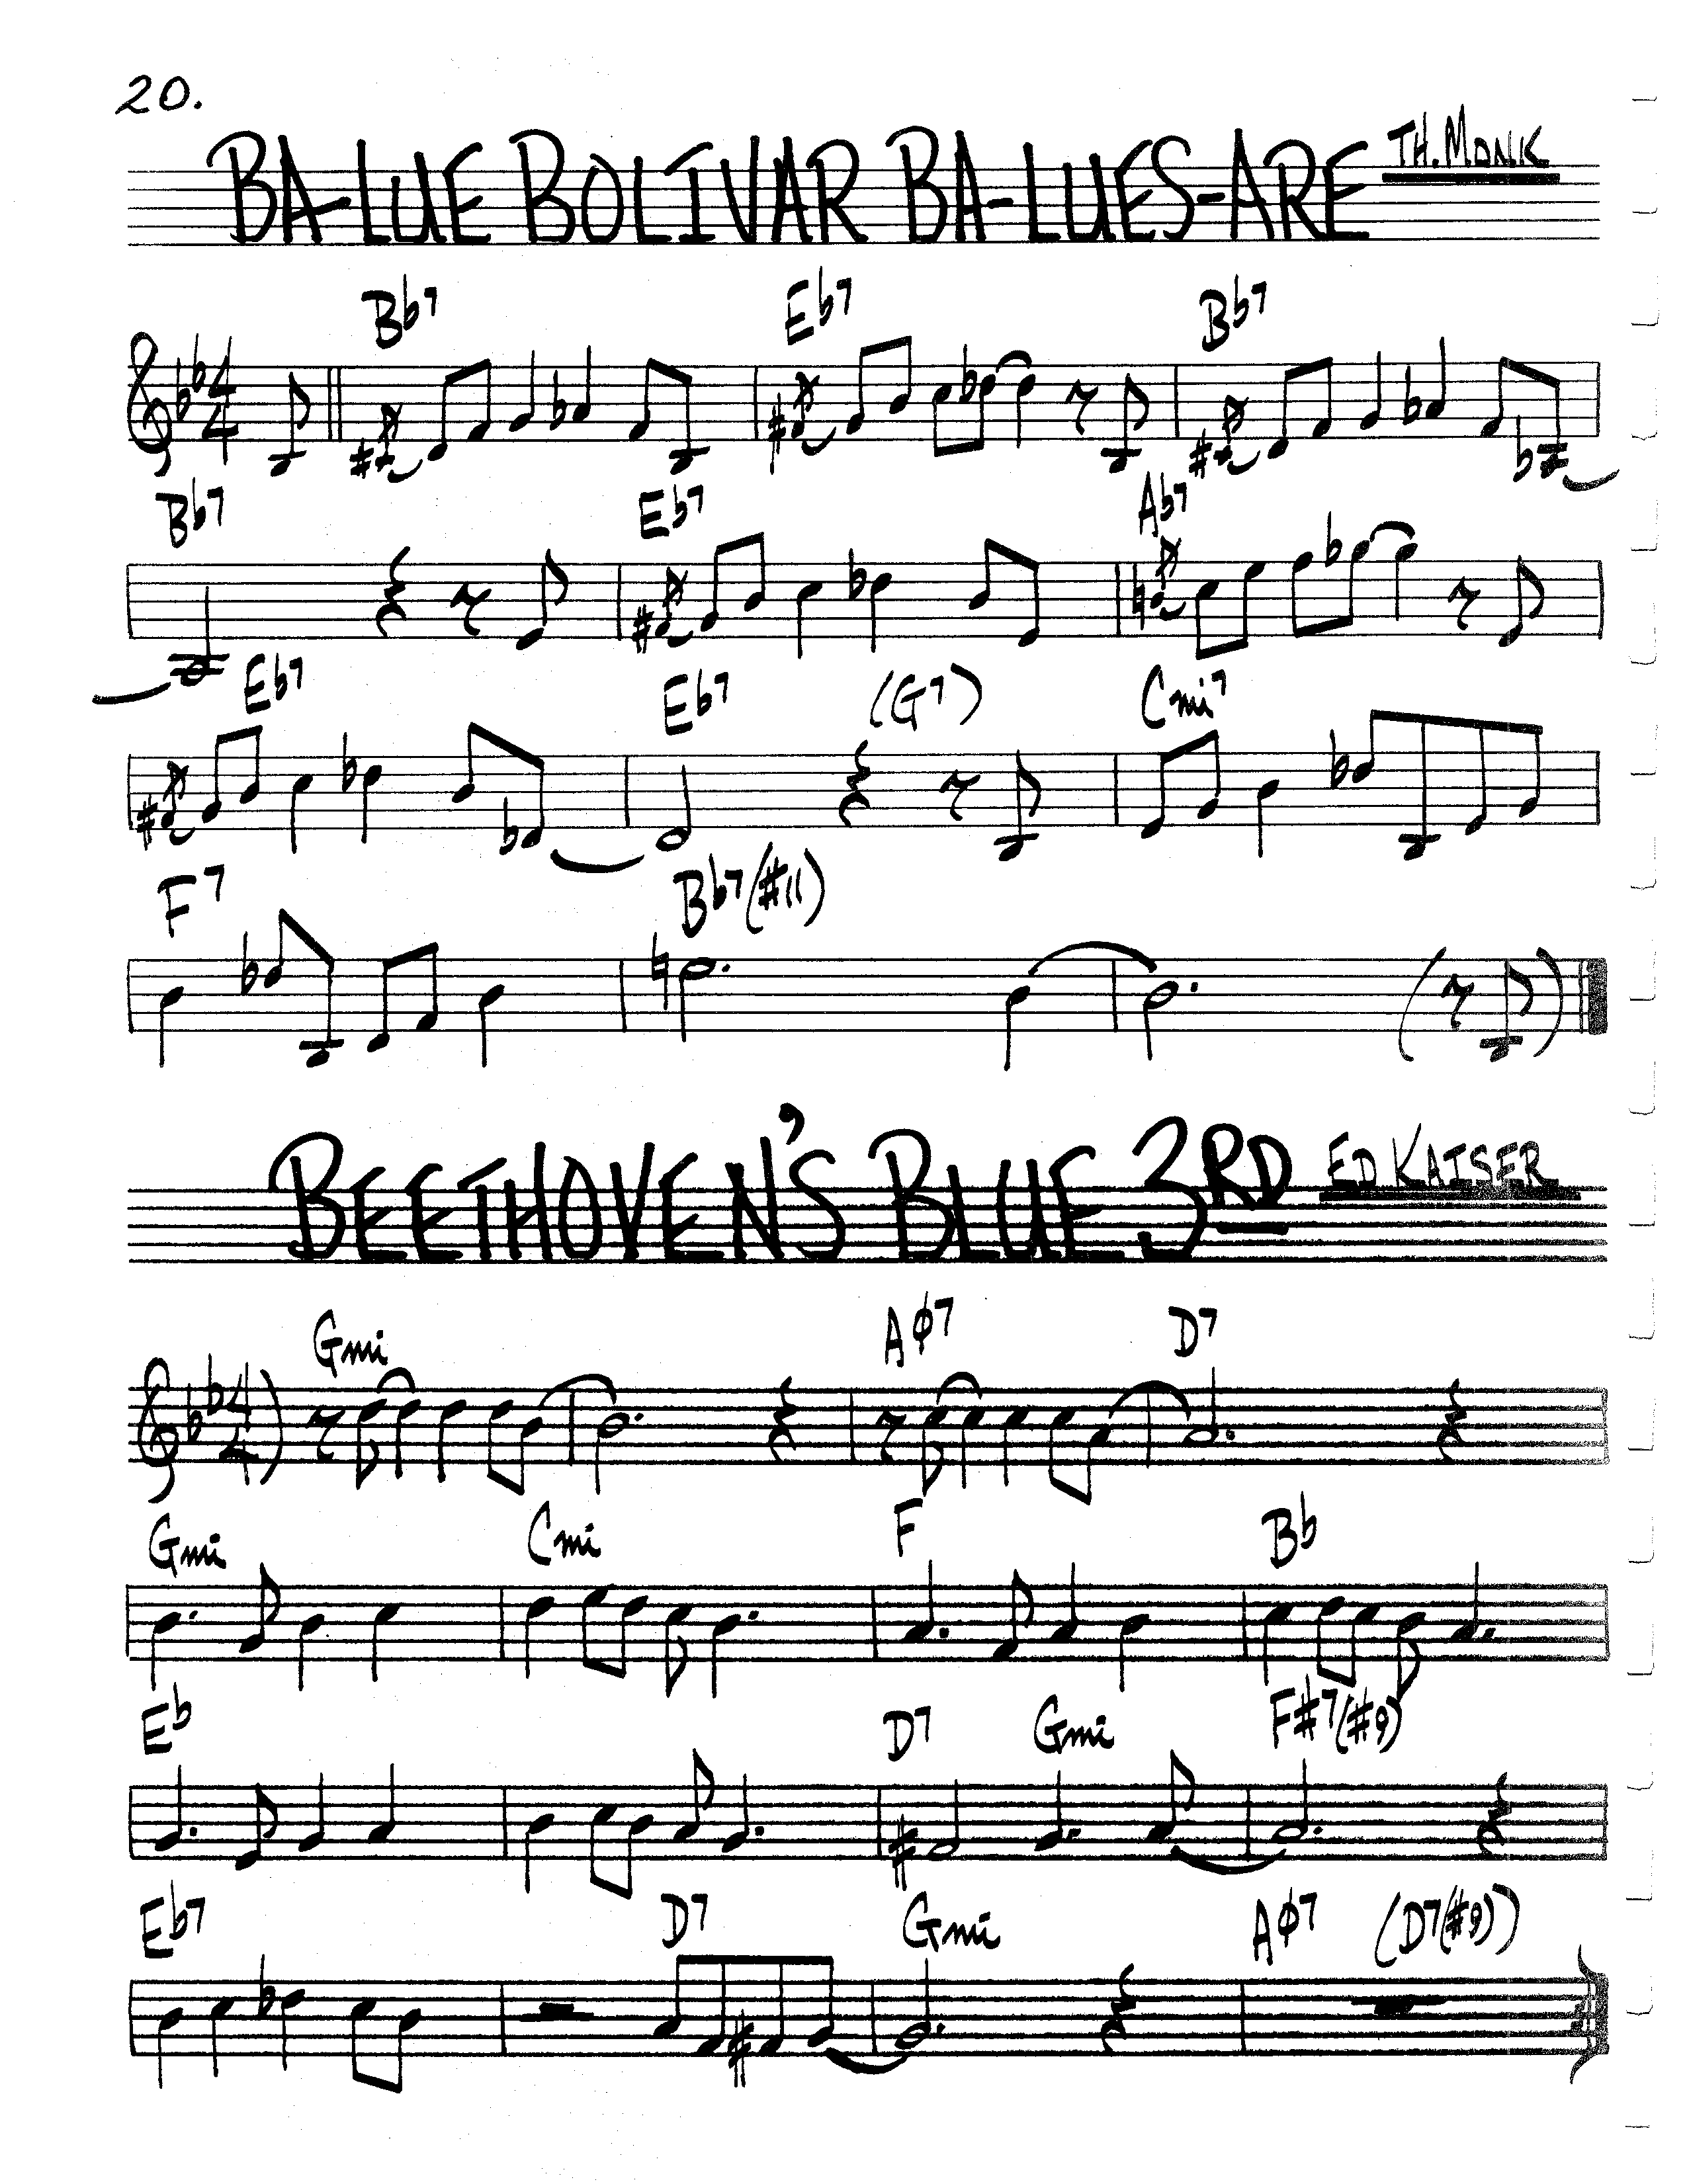 20.
BA-LUE BOLIVAR BA-LUES-ARE TH. MONK
B♭7 E♭7 B♭7
4
4
B♭7 E♭7 A♭7
E♭7 E♭7 (G7) Cmi7
F7 B♭7(#11)
BEETHOVEN'S BLUE 3RD ED KAISER
Gmi Aø7 D7
4
4)
Gmi Cmi F B♭
E♭ D7 Gmi F#7(#9)
E♭7 D7 Gmi Aø7 (D7(#9))